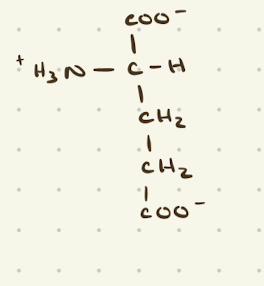 COO⁻
⁺H₃N — C — H
CH₂
CH₂
COO⁻